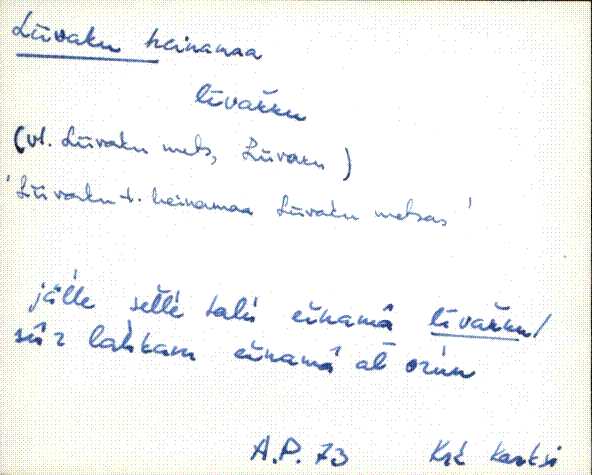 Liivaku heinamaa
līvakku
(vt. Liivaku mets, Liivaku)
'Liivaku t. heinamaa Liivaku metsas'
jälle selle talu einamā līvakku/
einamā al orun
A.P. 73 Krk Karksi